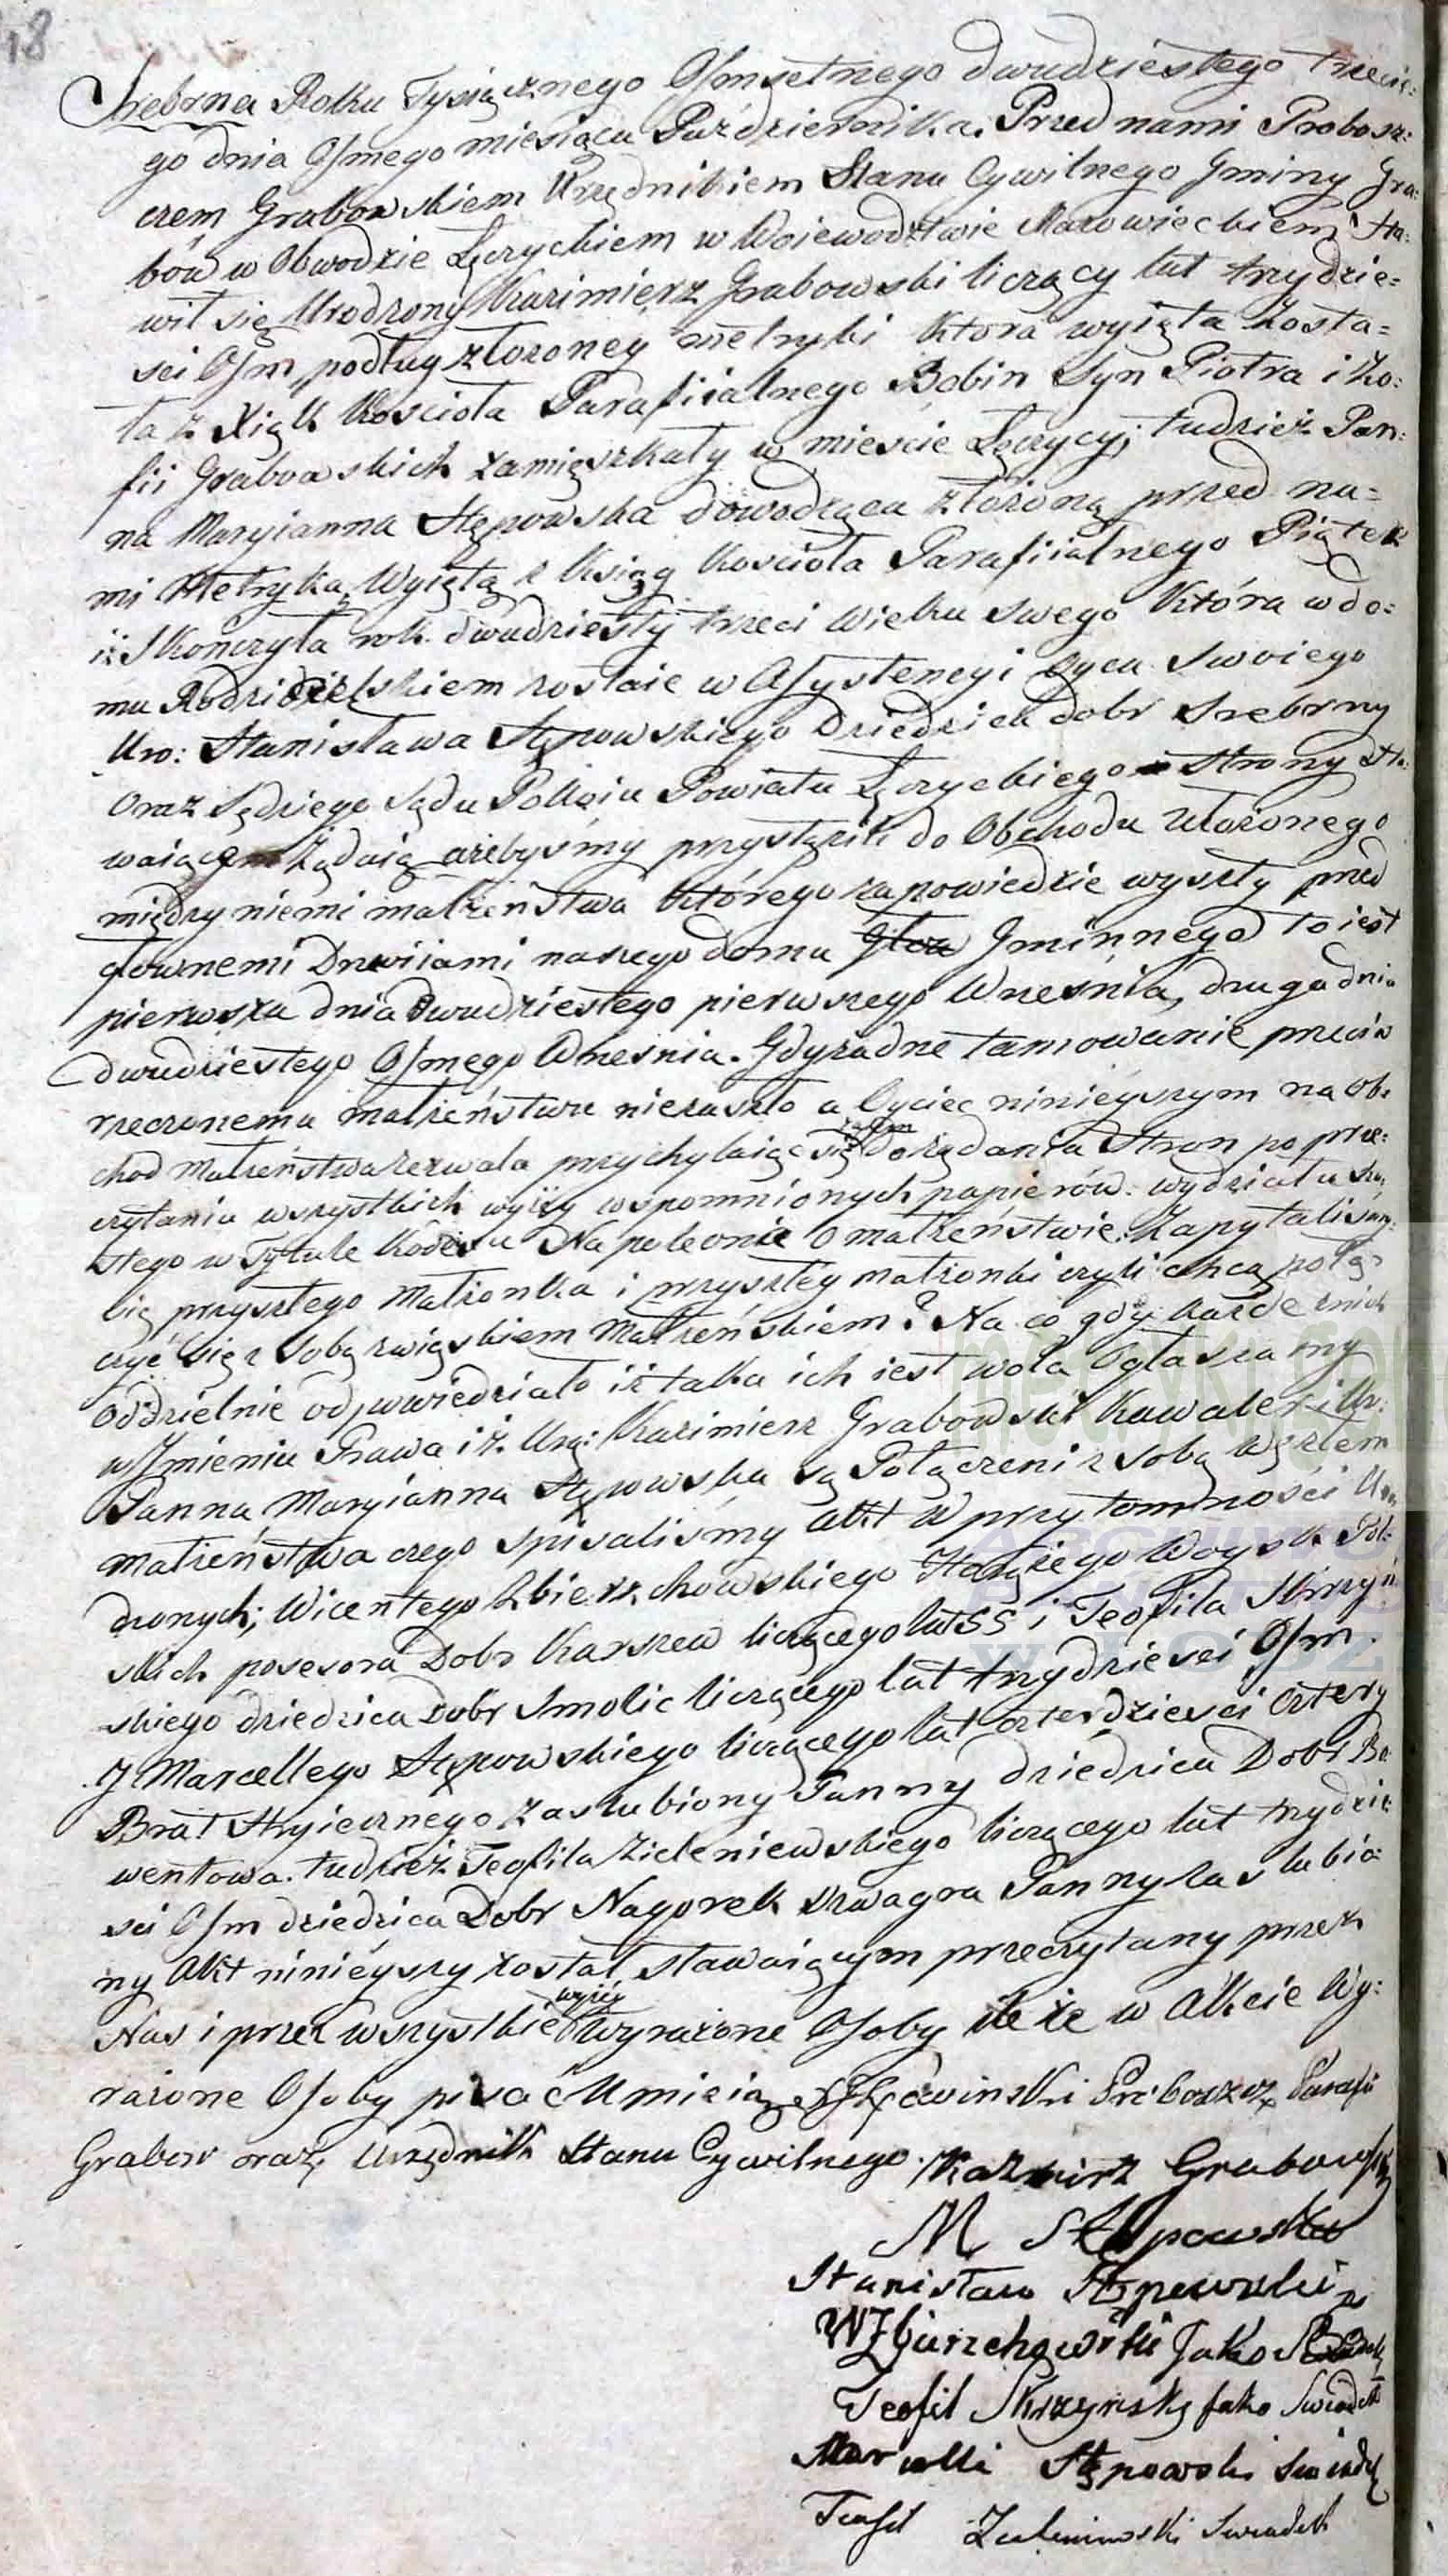 48
Srebrna Roku Tysiącznego Osmsetnego dwudziestego trzecie=
go dnia Osmego miesiąca Października. Przed nami Probosz=
czem Grabowskiem Urzędnikiem Stanu Cywilnego Gminy Gra=
bów w Obwodzie Łęczyckiem w Woiewodztwie Mazowieckiem sta=
wił się Urodzony Kazimierz Grabowski liczący lat trzydzie=
sci Osm, podług złozoney metryki która wyięta zosta=
ła z Xiąk Koscioła Parafiialnego Bobin Syn Piotra i Zo=
fii Grabowskich zamięszkały w miescie Łęczycy; tudzież Pan=
na Maryianna Stępowska dowodząca złozoną przed na=
mi Metryką Wyiętą z Ksiąg Koscioła Parafiialnego Piątek
iż Skonczyła rok dwudziesty trzeci Wieku Swego Która w do=
mu Rodzicielskiem zostaie w Assystencyi Oyca Swoiego
Uro: Stanisława Stępowskiego Dziedzica dobr Srebrny
Oraz Sędziego Sądu Pokoiu Powiatu Łęczyckiego Strony Sta=
waiące Ządaią ażebyśmy przystąpili do Obchodu Ułożonego
między niemi małżeństwa którego zapowiedzie wyszły przed
głownemi Drwiiami naszego domu Gminnego to iest
pierwsza dnia dwudziestego pierwszego Wrzesnia, druga dnia
dwudziestego Osmego Wrzesnia. Gdy żadne tamowanie przeciw
rzeczonemu małżeństwu niezaszło a Oyciec ninieyszym na ob=
chod Małżeństwa zezwala przychylaiąc się zatem do żądania Stron po prze=
czytaniu wszystkich wyżey wspomnionych papierów. wydziału szu=
stego w Tytule Kodexu Napoleona O małżeństwie. Zapytalismy
się przyszłego Małżonka i przyszłey małżonki czyli chcą połą=
czyć się z sobą związkiem Małżeńskiem? Na co gdy każde z nich
Oddzielnie odpowiedziało iż taka ich iest wola Ogłaszamy
w Imieniu Prawa iż Uro: Kazimierz Grabowski Kawaler i Ur:
Panna Maryianna Stępowska są Połączeni z sobą węzłem
Małżeństwa czego spisaliśmy akt w przytomności Uro
dzonych; Wicentego Zbierzchowskiego Woysk Pol=
skich posesora Dobr Karszew liczącego lat 55 i Teofila Skrzyń
skiego dziedzica Dobr Smolic liczącego lat trzydziesci Osm.
I Marcellego Stępowskiego liczącego lat czterdziesci Cztery
Brat Stryiecznego zaslubiony Panny dziedzica Dobr Be=
wentowa. tudzież Teofila Zieleniewskiego liczącego lat trzydzie
sci Osm dziedzica Dobr Nagorek szwagra Panny zaslubio=
ny Akt ninieyszy został stawaiącym przeczytany przez
Nas i przez wszystkie wyżey wyrażone Osoby ile że w Akcie Wy=
rażone Osoby pisać Umieią Proboszcz Parafii
Grabow oraz Urzędnik Stanu Cywilnego. Kazimirz Grabowski
M Stępowska
Stanisław Stępowski
W Zbierzchowski Jako Swiadek
Teofil Skrzyński jako Swiadek
Marcelli Stępowski Swiadek
Teofil Zieleniewski Swiadek
metryki.gen
ARCHIWUM
PAŃSTWOWE
W ŁODZI